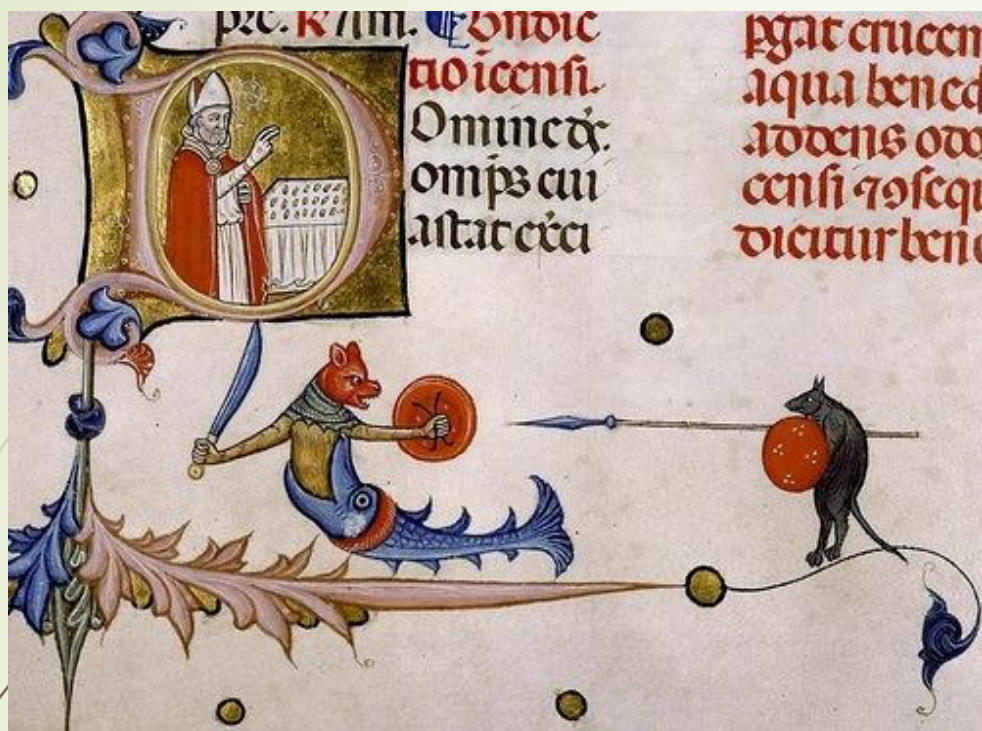 Am.
tio icensi.
Domine ds.
omips cui
astat exci
pgat crucem
aqua bened
addens odo
censi ⁊ ꝯsequ
dicitur bene